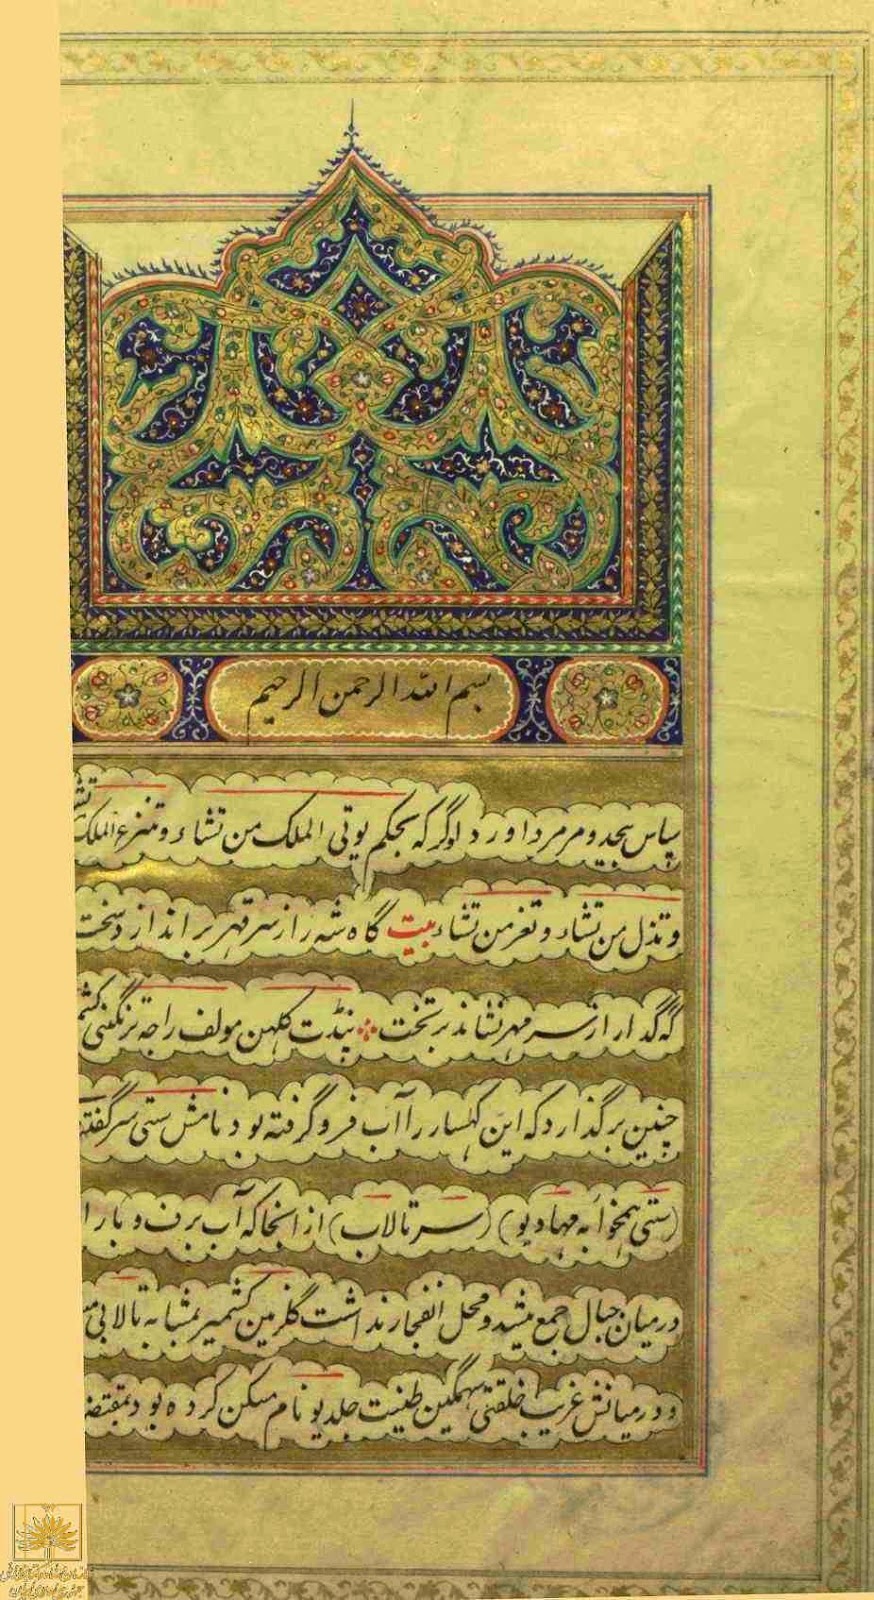 بسم الله الرحمن الرحیم
سپاس بیحد و مر مر داور دادگر که بحکم یوتی الملک من تشاء و تنزع الملک
و تذل من تشاء و تعز من تشاء بیت گاه شه را از سر قهر بر اندازد سخت
گه گدا را از سر مهر نشاند بر تخت پندت کلهن مولف راجه ترنگنی
چنین بر گذارد که این کهسار را آب فرو گرفته بود نامش ستی سر گفته
(ستی همخوابه مهادیو) (سر تالاب) از انجا که آب برف و بارا
درمیان جبال جمع میشد و محل انفجار نداشت گلزمین کشمیر بمشابه تالابی
و در میانش غریب خلقتی سهمگین طینت جلدیو نام مسکن کرده بود